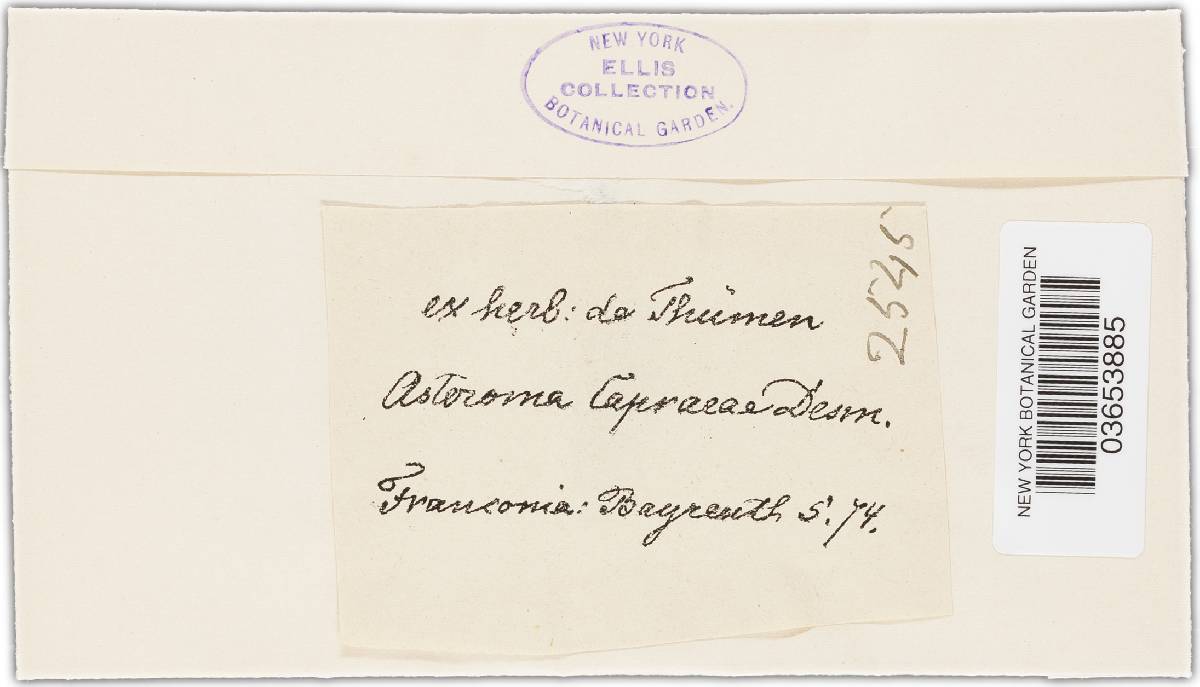 NEW YORK
ELLIS
COLLECTION
BOTANICAL GARDEN.
2545
ex herb: de Thümen
Asteroma Capraeae Desm.
Franconia: Bayreuth 5.74.
NEW YORK BOTANICAL GARDEN
03653885